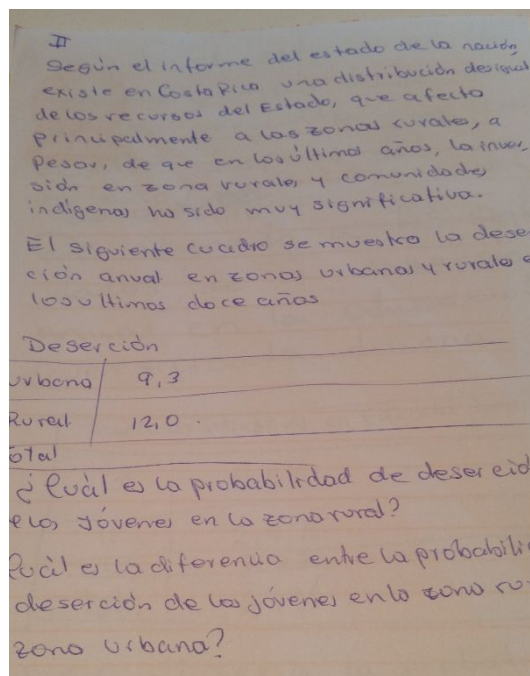 II
Según el informe del estado de la nación,
existe en Costa Rica una distribución desigual
de los recursos del Estado, que afecta
principalmente a las zonas rurales, a
pesar, de que en los últimos años, la inver
sión en zona rurales y comunidades
indígenas ha sido muy significativa.
El siguiente cuadro se muestra la dese
ción anual en zonas urbanas y rurales e
los ultimos doce años
Deserción
urbana 9,3
Rural 12,0
otal
¿Cuál es la probabilidad de deserció
e los jóvenes en la zona rural?
Cuál es la diferencia entre la probabili
deserción de los jóvenes en la zona ru
zona urbana?